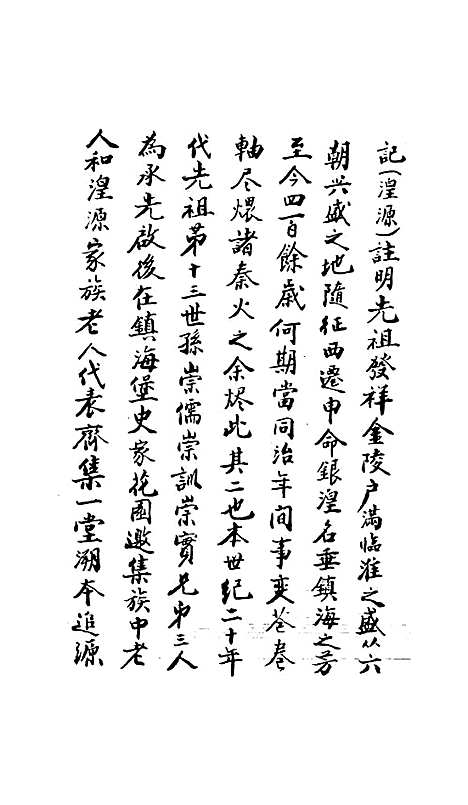 記(湟源)註明先祖發祥金陵户滿臨淮之盛以六
朝兴盛之地隨征西遷申命銀湟名垂鎮海之芳
至今四百餘歲何期當同治年间事変苍卷
軸尽煨諸秦火之余烬此其二也本世纪二十年
代先祖苐十三世孫崇儒崇訓崇實兄弟三人
為承先啟後在鎮海堡史家花園邀集族中老
人和湟源家族老人代表齊集一堂溯本追源